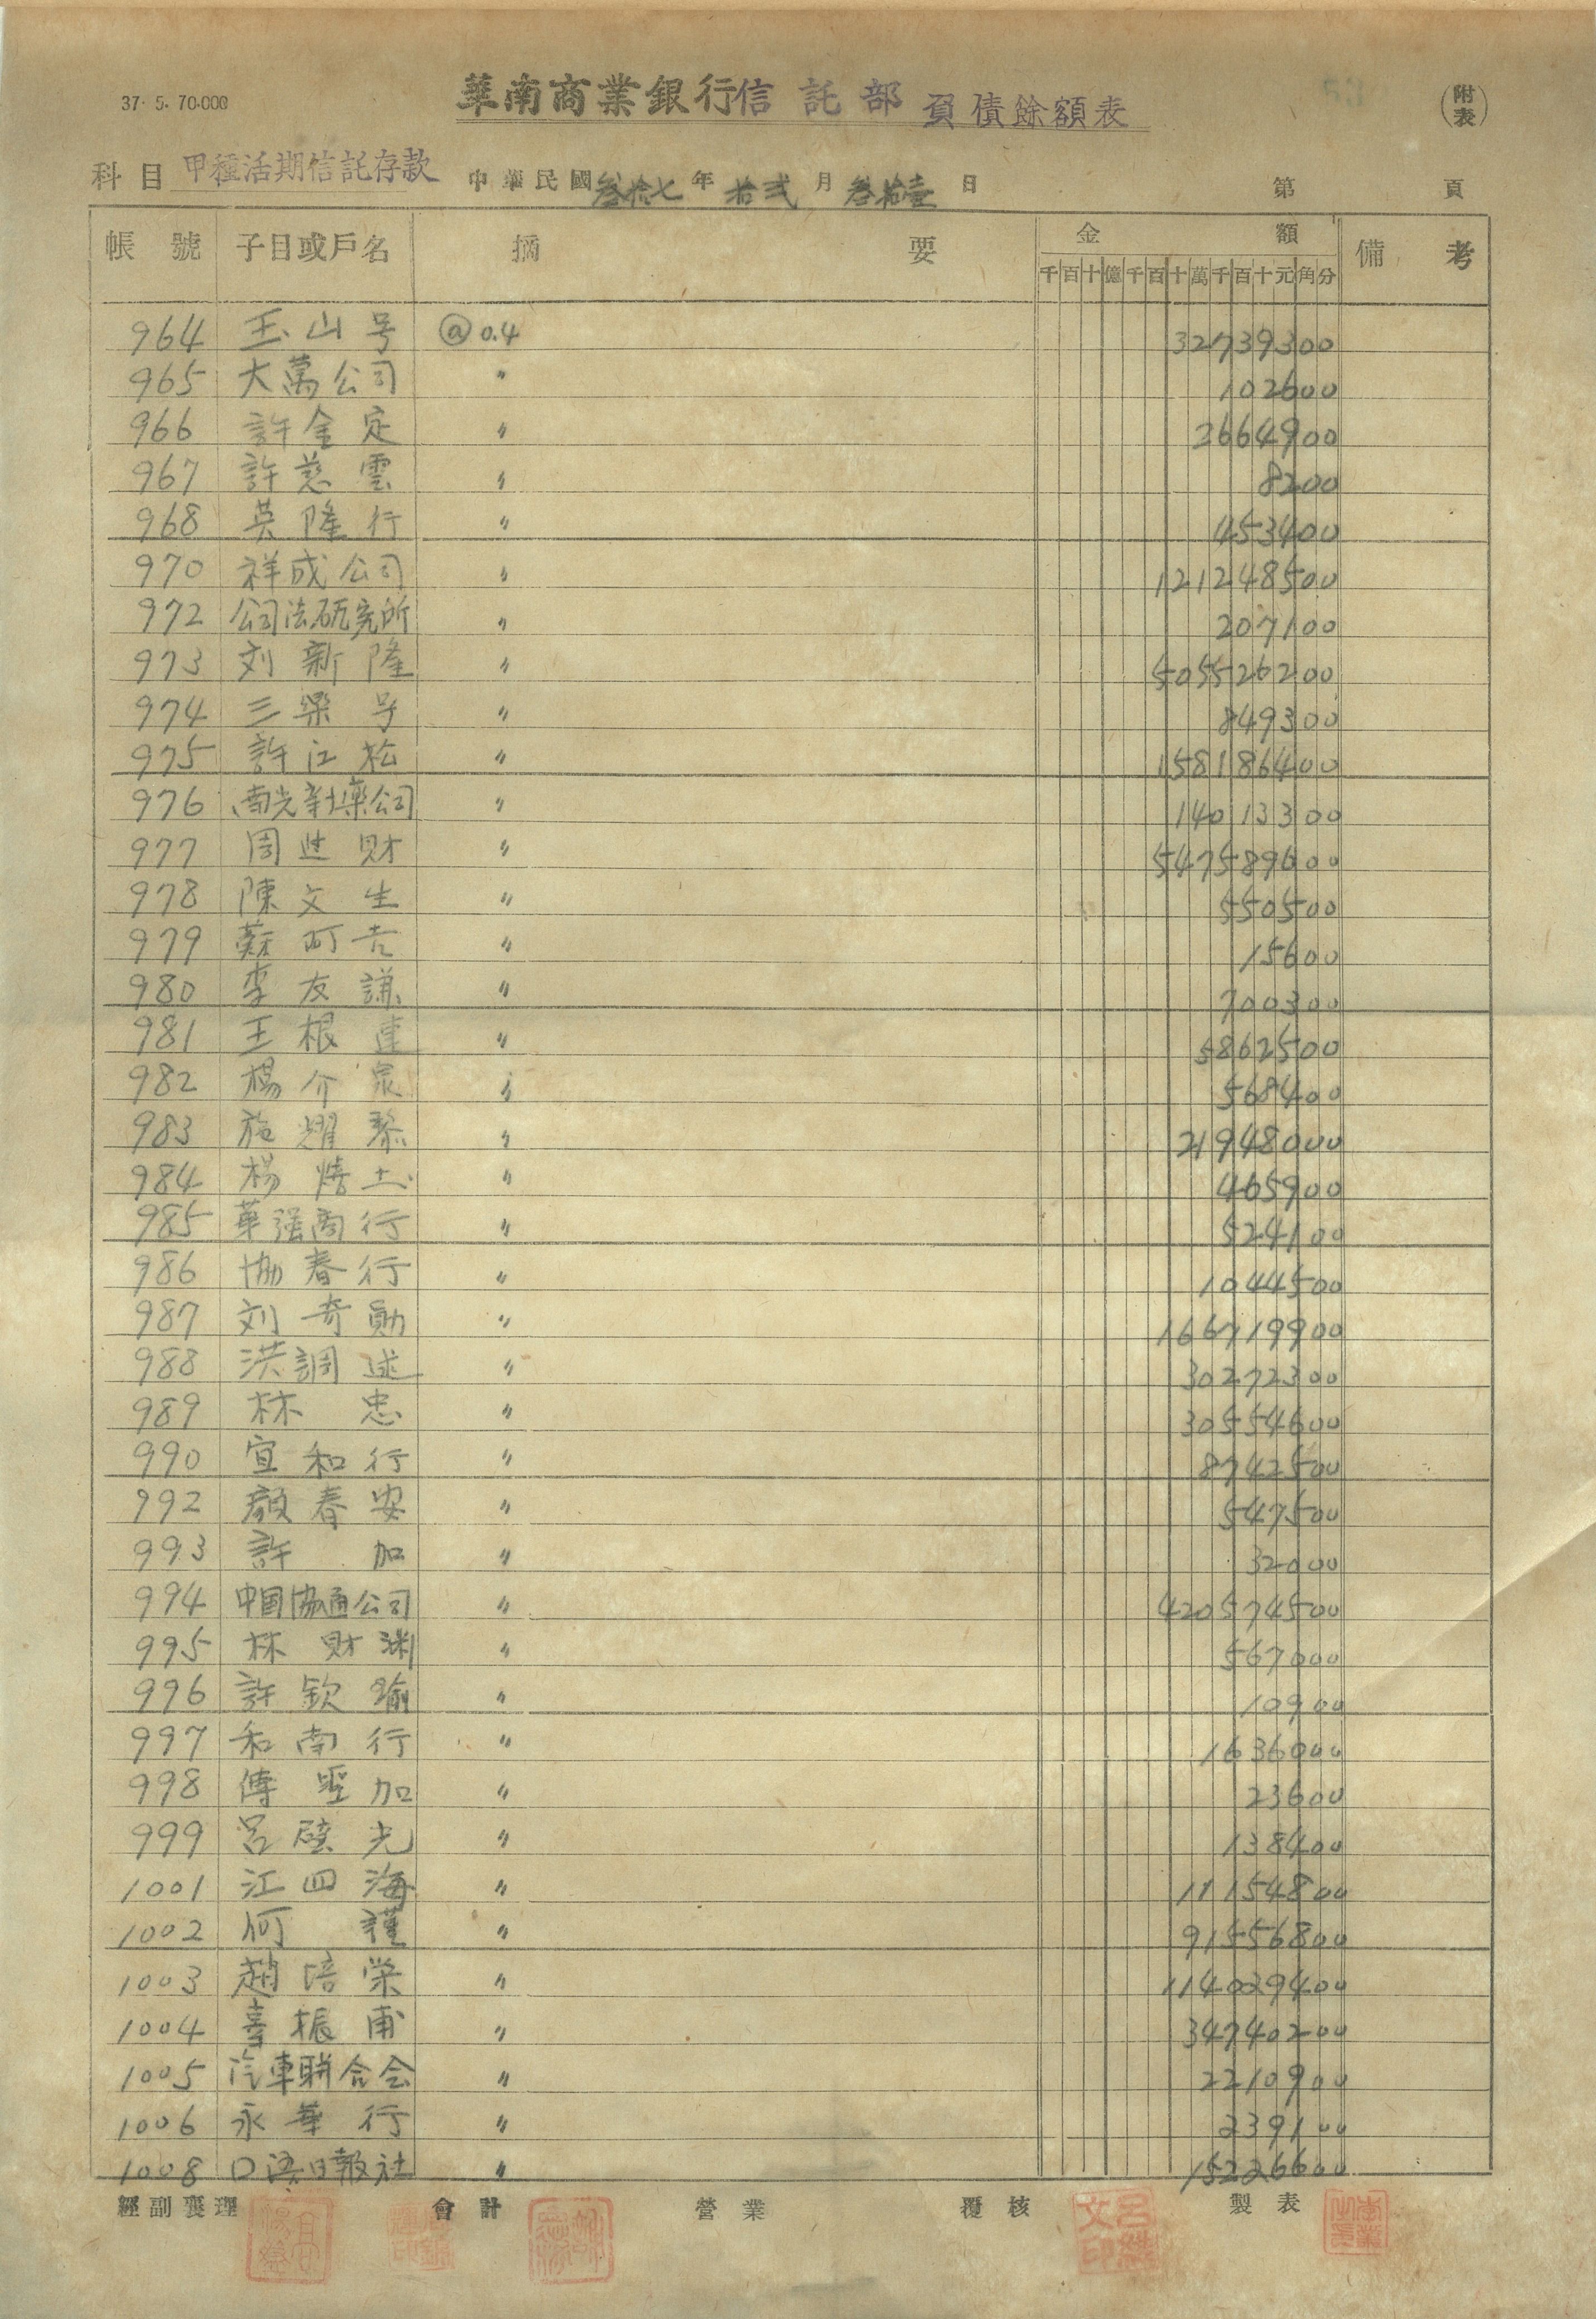 37. 5. 70.000
華南商業銀行信託部 負債餘額表
53
(附表)
科目 甲種活期信託存款 中華民國 叁拾七年 拾弍月 叁拾壹日 第 頁
帳號 子目或戶名 摘要 金額 備考
千百十億千百十萬千百十元角分
964 玉山号 @0.4 32739300
965 大萬公司 〃 102600
966 許金定 〃 2664900
967 許慈雲 〃 8200
968 英隆行 〃 453400
970 祥成公司 〃 121248500
972 公司法研究所 〃 207100
973 刘新隆 〃 505526200
974 三樂号 〃 849300
975 許江松 〃 158186400
976 南光製藥公司 〃 14013300
977 周进財 〃 547589600
978 陳文生 〃 550500
979 蘇阿吉 〃 15600
980 李友謙 〃 700300
981 王根連 〃 5862500
982 楊介泉 〃 568400
983 施耀黎 〃 21948000
984 楊焙土 〃 465900
985 華强商行 〃 524100
986 協春行 〃 1044500
987 刘奇勛 〃 166719900
988 洪調述 〃 30272300
989 林忠 〃 30554600
990 宜和行 〃 8742500
992 顏春安 〃 547500
993 許加 〃 32000
994 中国協通公司 〃 420574500
995 林財渊 〃 567000
996 許欽瑜 〃 10900
997 和南行 〃 1636000
998 傅堅加 〃 23600
999 呂壁光 〃 138400
1001 江四海 〃 11154800
1002 何謹 〃 91556800
1003 趙培榮 〃 114029400
1004 辜振甫 〃 34740200
1005 汽車联合会 〃 2210900
1006 永華行 〃 239100
1008 口语日報社 〃 15226600
經副襄理 會計 營業 覆核 製表